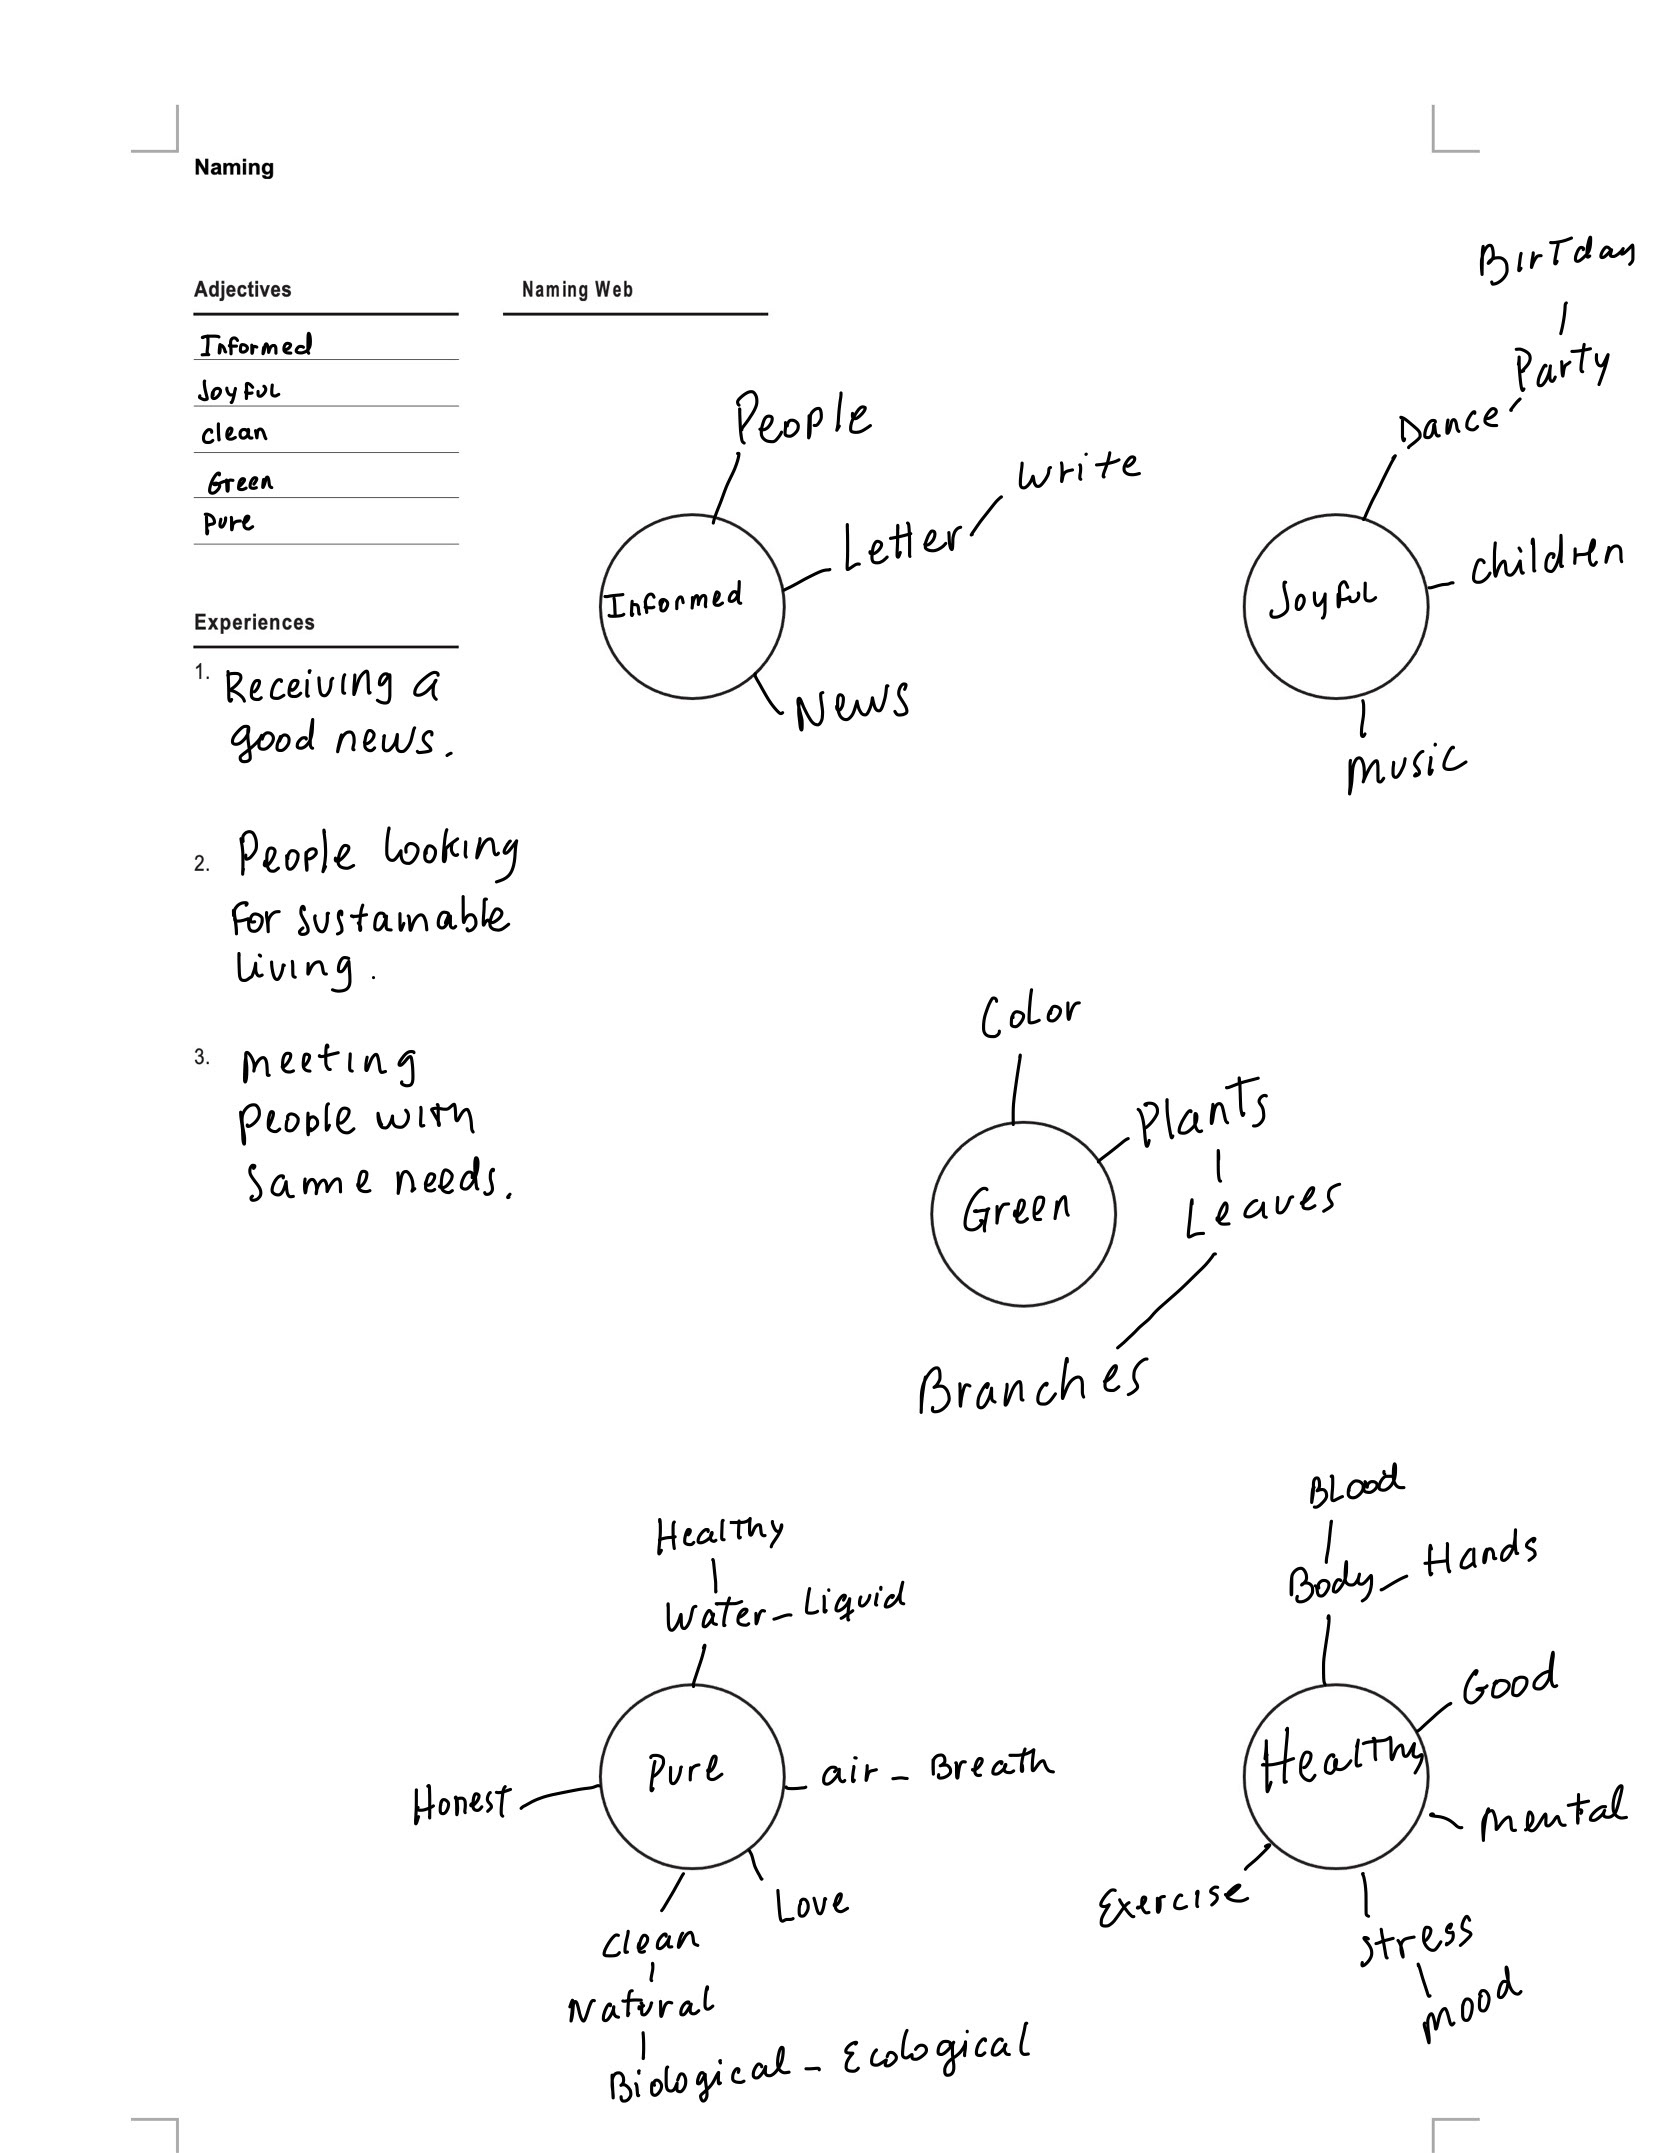 Naming
Adjectives
Informed
Joyful
clean
Green
Pure
Experiences
1. Receiving a
good news.
2. People looking
for sustainable
living.
3. meeting
people with
same needs.
Naming Web
People
Letter
write
Informed
News
BirTday
Party
Dance
children
Joyful
music
Color
Plants
Leaves
Green
Branches
Healthy
Water - Liquid
Pure
air - Breath
Honest
Love
Clean
Natural
Biological - Ecological
Blood
Body - Hands
Good
Healthy
mental
Exercise
stress
mood